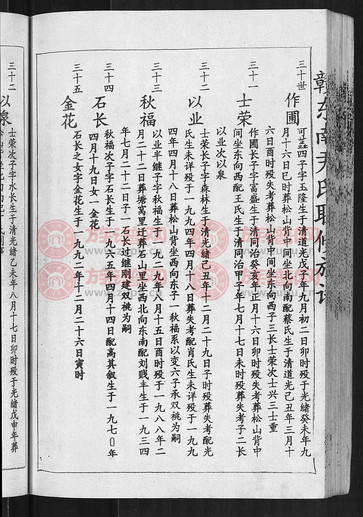 贛东南尹氏联修族谱
三十世
作圃
可茘四子字玉隆生于清道光戊子年九月初二日卯时殁于光绪癸未年九
月十六日巳时葬松山背中间坐北向南配氏生于清道光己丑年三月十
六日酉时殁失考葬松山背中间坐东向西子三长士荣次士兴三士重
三十一
士荣
作圃长子字富盛生于清同治癸亥年正月十六日卯时殁失考葬松山背中
间坐东向西配王氏生于清同治甲子年七月十七日未时殁葬失考子二长
以业次以泉
三十二
以业
士荣长子字森林生于清光绪己丑年十二月二十九日子时殁葬失考配光
氏生未详殁于一九九四年四月十八日葬失考配肖氏生未详殁于一九九
四年四月十八日葬松山背坐西向东子一秋福系以变六子承双祧为嗣
三十三
秋福
以业半继子字福生于一九二九年八月十五日酉时殁于一九八八年二
月二十二日葬塘窝里迁葬石山里坐西北向东南配刘贱半生于一九三四
年七月二十二日子一石长过继刚建双祧为嗣
三十四
石长
秋福次子字石长生于一九六五年四月十四日配高其叙生于一九七〇年
四月十九日女一金花
三十五
金花
石长之女字金花生于一九九二年十二月二十六日寅时
三十二
以泉
士荣次子字水长生于清光绪乙未年八月十七日卯时殁于光绪戊申年葬